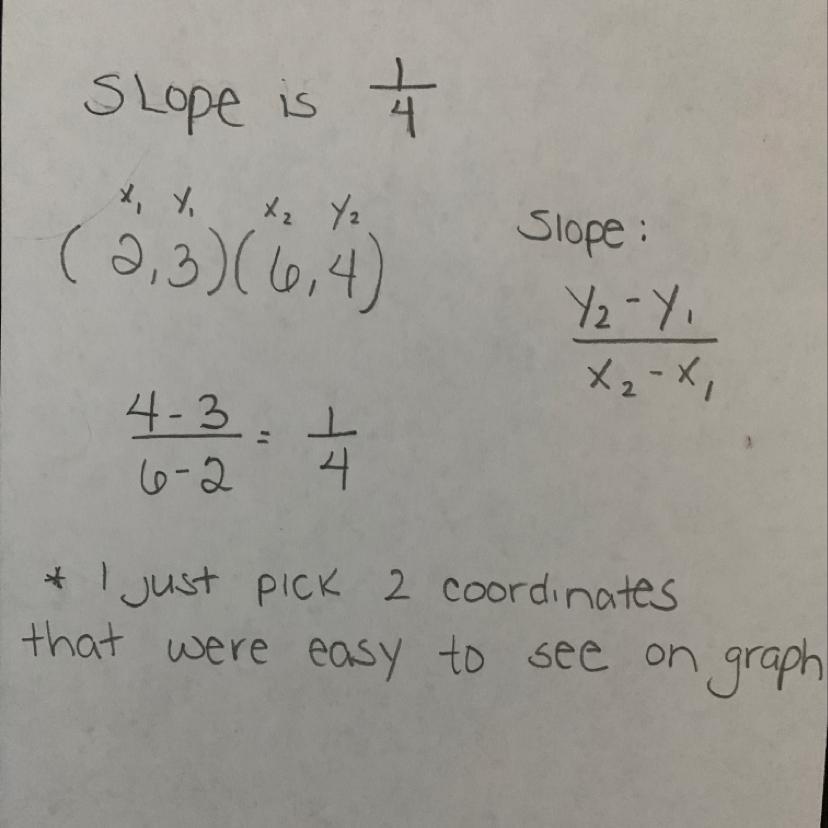 Slope is 1/4
x₁ y₁ x₂ y₂
(2,3)(6,4)
Slope:
y₂-y₁
x₂-x₁
4-3
6-2
= 1/4
* I just pick 2 coordinates
that were easy to see on graph